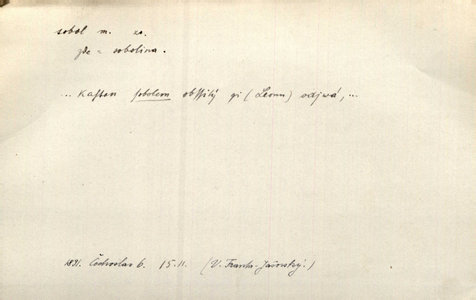 sobol m. zv.
zde = sobolina.
... kaftan sobolem obssitý gi (Leonu) odjwá, ...
1831. Čechoslav 6. 15.11. (V. Franta-Jaurský.)